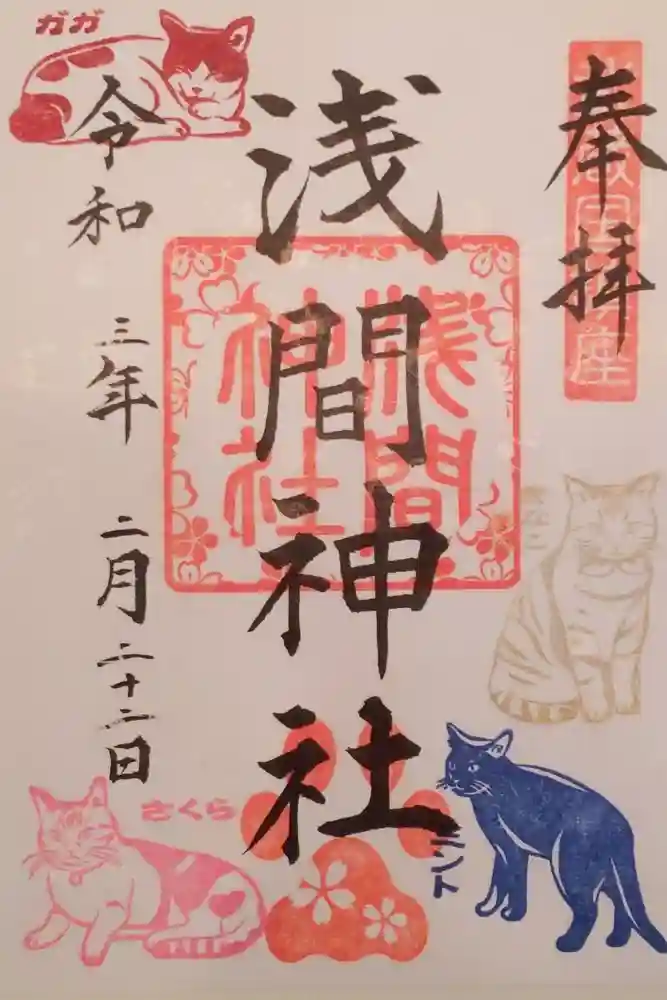 奉拝
浅間神社
浅間
神社
令和三年二月二十二日
ガガ
さくら
ミント